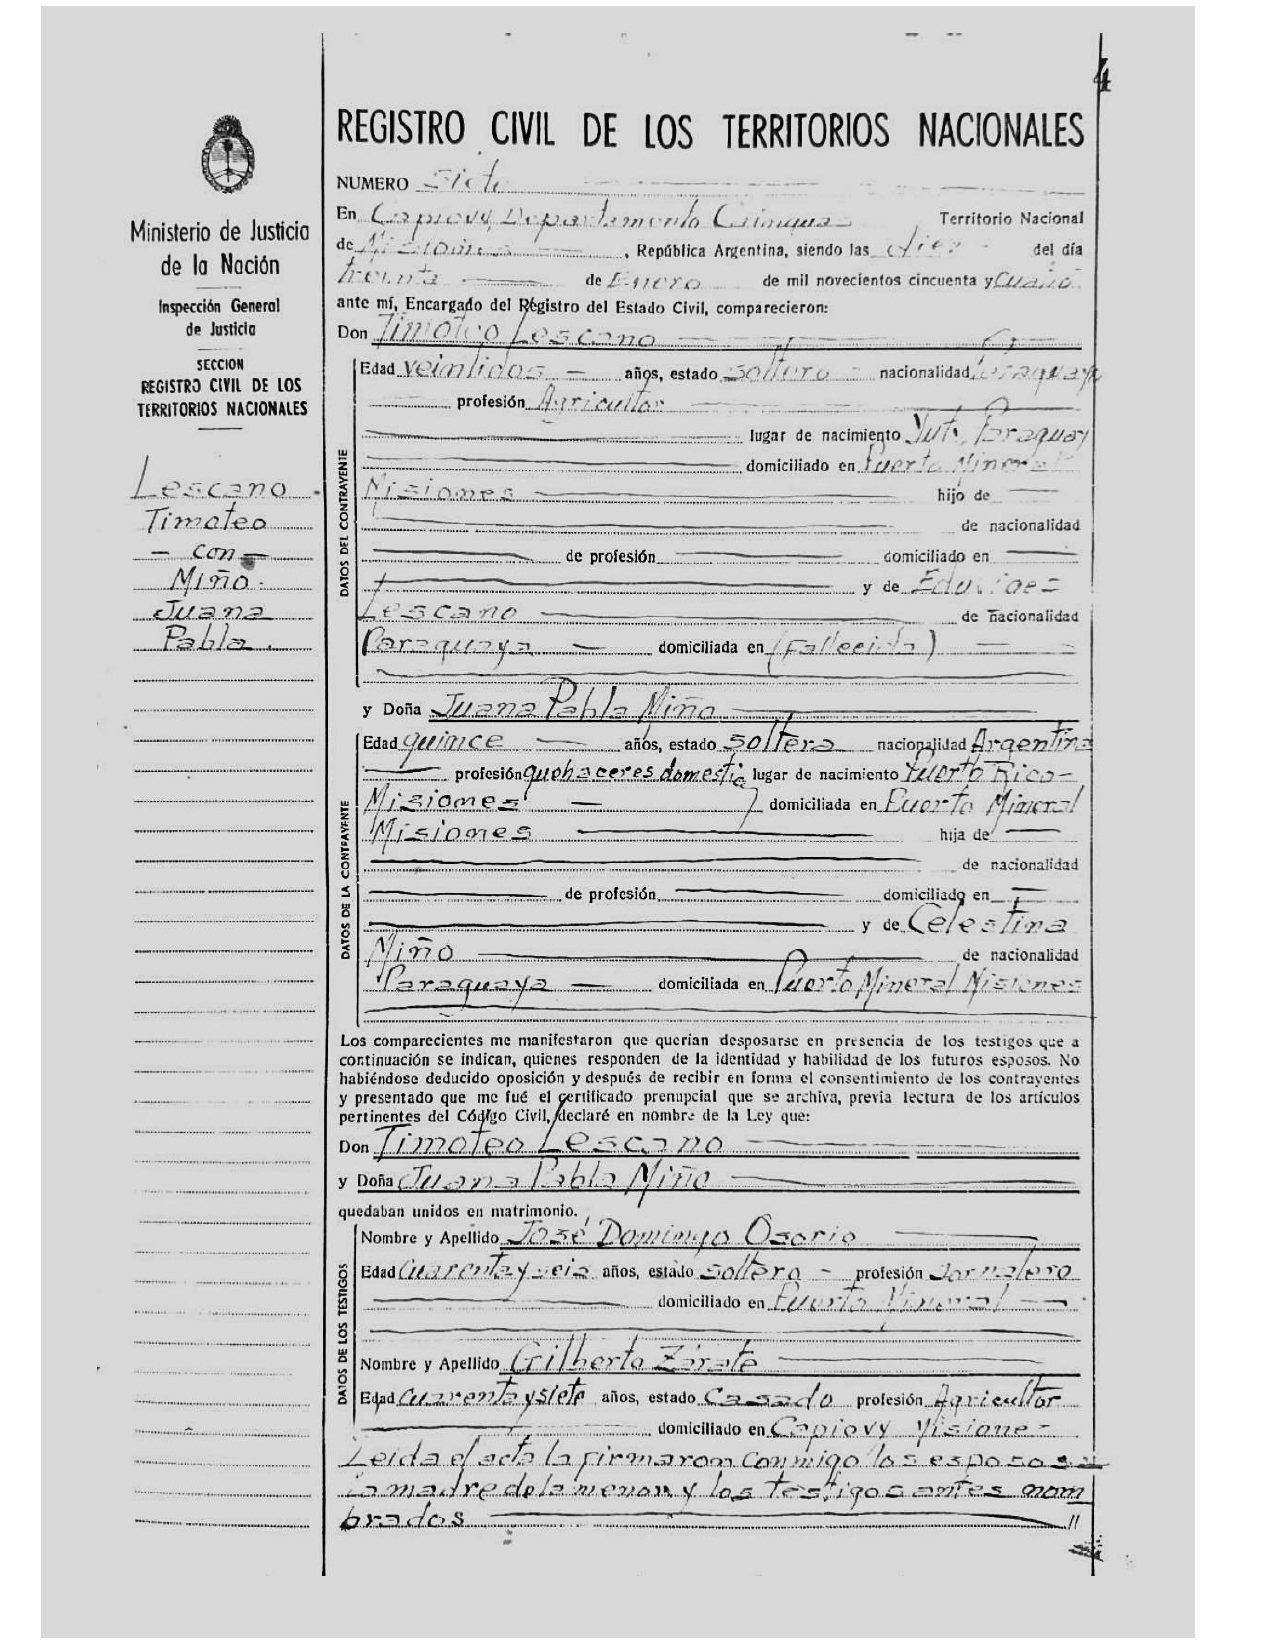 4
REGISTRO CIVIL DE LOS TERRITORIOS NACIONALES
NUMERO Siete
En Capiovy, Departamento Cainguas Territorio Nacional
de Misiones, República Argentina, siendo las diez del día
treinta de Enero de mil novecientos cincuenta y cuatro
ante mí, Encargado del Registro del Estado Civil, comparecieron:
Don Timoteo Lescano
Ministerio de Justicia
de la Nación
Inspección General
de Justicia
SECCION
REGISTRO CIVIL DE LOS
TERRITORIOS NACIONALES
Lescano
Timoteo
- con -
Miño.
Juana
Pabla.
DATOS DEL CONTRAYENTE
Edad veintidos - años, estado soltero - nacionalidad Paraguaya
profesión Agricultor
lugar de nacimiento Yuti, Paraguay
domiciliado en Puerto Mineral
Misiones hijo de
de nacionalidad
de profesión domiciliado en
y de Eduviges
Lescano de nacionalidad
Paraguaya - domiciliada en (Fallecida)
y Doña Juana Pabla Miño
DATOS DE LA CONTRAYENTE
Edad quince - años, estado soltera nacionalidad Argentina
profesión quehaceres domestic lugar de nacimiento Puerto Rico -
Misiones - domiciliada en Puerto Mineral
Misiones hija de
de nacionalidad
de profesión domiciliado en
y de Celestina
Miño de nacionalidad
Paraguaya - domiciliada en Puerto Mineral Misiones
Los comparecientes me manifestaron que querían desposarse en presencia de los testigos que a
continuación se indican, quienes responden de la identidad y habilidad de los futuros esposos. No
habiéndose deducido oposición y después de recibir en forma el consentimiento de los contrayentes
y presentado que me fué el certificado prenupcial que se archiva, previa lectura de los artículos
pertinentes del Código Civil, declaré en nombre de la Ley que:
Don Timoteo Lescano
y Doña Juana Pabla Miño
quedaban unidos en matrimonio.
DATOS DE LOS TESTIGOS
Nombre y Apellido José Domingo Osorio
Edad Cuarenta y seis años, estado soltero - profesión Jornalero
domiciliado en Puerto Mineral
Nombre y Apellido Gilberto Zárate
Edad Cuarenta y siete años, estado Casado profesión Agricultor
domiciliado en Capiovy Misiones
Leida el acta la firmaron conmigo los esposos
la madre de la menor y los testigos antes nom
brados //